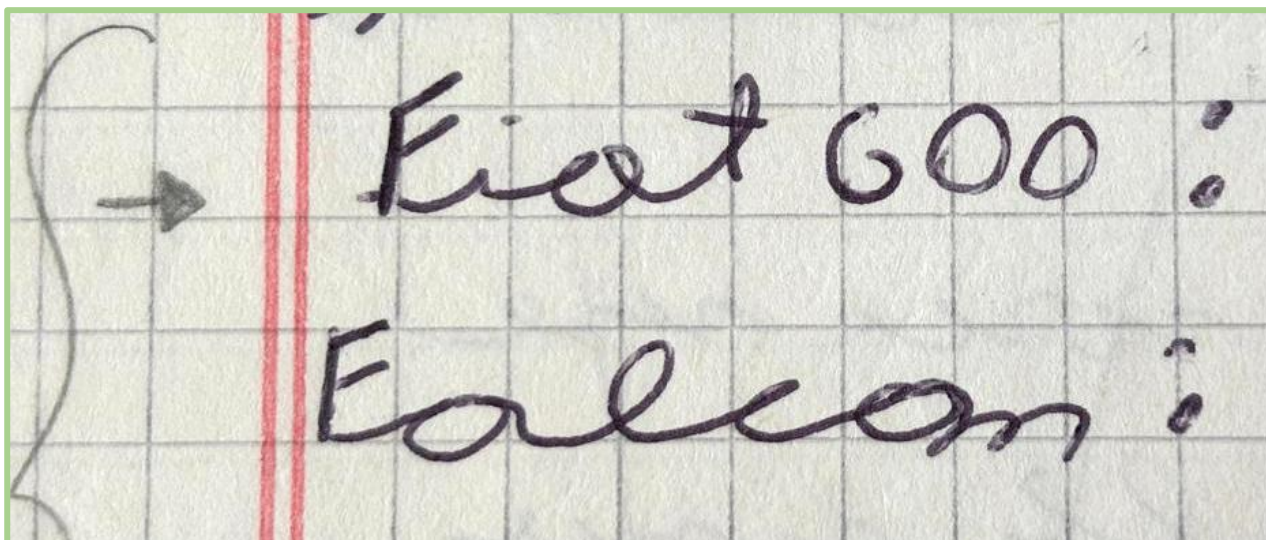 Fiat 600 :
Falcon :